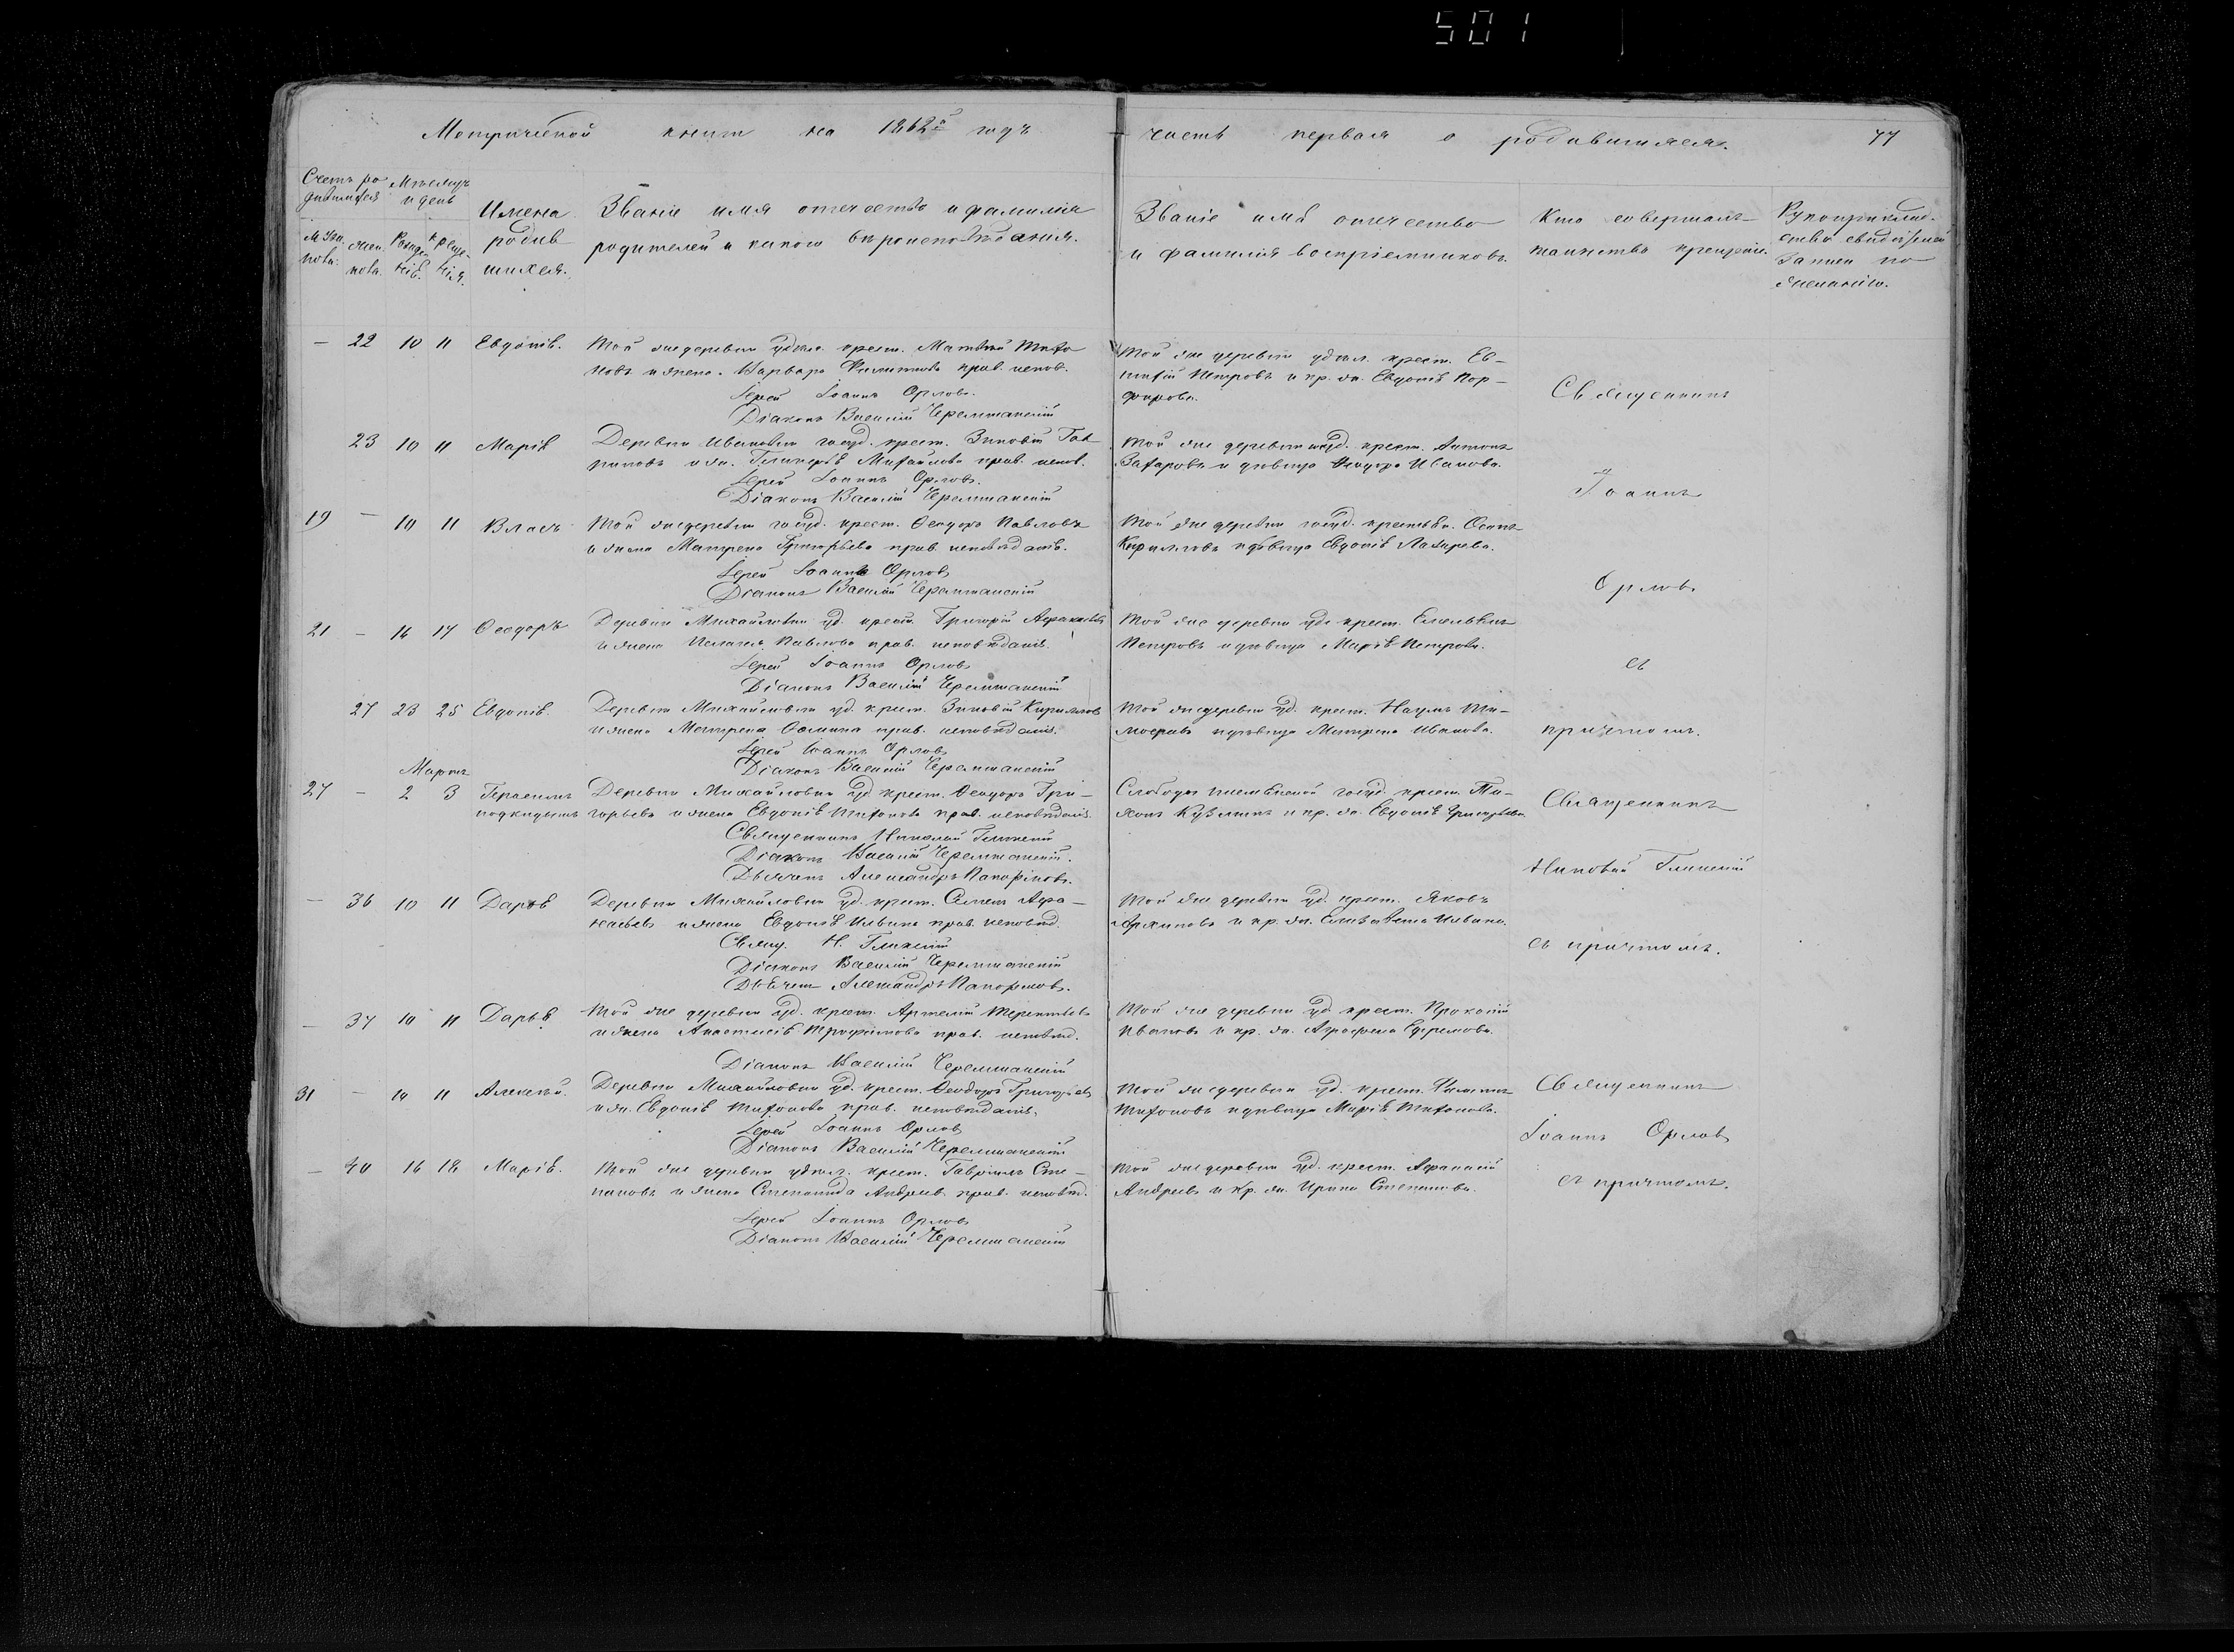 501
Метрической книги на 1862й годъ
часть первая о родившихся.
77
Счетъ ро-
дившихся
Мѣсяцъ
и день
Имена
родив
шихся.
Званіе имя отчество и фамилія
родителей и какого вѣроисповѣданія.
Званіе имя отчество
и фамилія воспріемниковъ.
Кто совершалъ
таинство крещенія.
Рукоприклад-
ство свидѣтелей
записи по
желанію.
— 22 10 11 Евдокія. Той же деревни удѣл. крест. Матвѣй Тихо
новъ и жена Варвара Филиппова прав. испов.
Іерей Іоаннъ Орловъ.
Діаконъ Василій Черемшанскій
Той же деревни удѣл. крест. Ев-
тихій Петровъ и кр. ж. Евдокія Пор-
фирова.
Священникъ
23 10 11 Марія Деревни Ивановки госуд. крест. Зиновій
и ж. Гликерія Михайлова прав. испов.
Іерей Іоаннъ Орловъ.
Діаконъ Василій Черемшанскій
Той же деревни госуд. крест. Антонъ
Захаровъ и дѣвица Ѳеодора Иванова.
Іоаннъ
19 — 10 11 Власъ Той же деревни госуд. крест. Ѳеодоръ Павловъ
и жена Матрена Григорьева прав. исповѣданія.
Іерей Іоаннъ Орловъ
Діаконъ Василій Черемшанскій
Той же деревни госуд. крестьян. Осипъ
Кирилловъ и дѣвица Евдокія Лазарева.
Орловъ
21 — 16 17 Ѳеодоръ Деревни Михайловки уд. крест. Григорій Афанасьевъ
и жена Пелагея Павлова прав. исповѣданія.
Іерей Іоаннъ Орловъ
Діаконъ Василій Черемшанскій
Той же деревни удѣ. крест. Емельянъ
Петровъ и дѣвица Марія Петрова.
съ
27 23 25 Евдокія. Деревни Михайловки уд. крест. Зиновій Кирилловъ
и жена Матрена Фомина прав. исповѣданія.
Іерей Іоаннъ Орловъ
Діаконъ Василій Черемшанскій
Той же деревни уд. крест. Наумъ Ти-
моѳеевъ и дѣвица Матрена Иванова.
причтомъ.
Мартъ
27 — 2 3 Герасимъ Деревни Михайловки уд. крест. Ѳеодоръ Гри-
подкидышъ горьевъ и жена Евдокія Тихонова прав. исповѣданія.
Священникъ Николай Глинскій
Діаконъ Василій Черемшанскій.
Дьячекъ Александръ
Слободы госуд. крест. Ти-
хонъ Кузминъ и кр. ж. Евдокія Григорьева
Священникъ
Николай Глинскій
— 36 10 11 Дарія Деревни Михайловки уд. крест. Семенъ Афа-
насьевъ и жена Евдокія Ильина прав. исповѣд.
Свящ. Н. Глинскій
Діаконъ Василій Черемшанскій
Дьячекъ Александръ
Той же деревни уд. крест. Яковъ
Архиповъ и кр. ж. Елизавета Ильина.
съ причтомъ.
— 37 10 11 Дарья Той же деревни уд. крест. Артемій Терентьевъ
и жена Анастасія Трофимова прав. исповѣд.
Діаконъ Василій Черемшанскій
Той же деревни уд. крест. Прокопій
Ивановъ и кр. ж. Аграфена Ефремова.
31 — 10 11 Алексѣй. Деревни Михайловки уд. крест. Ѳеодоръ Григорьевъ
и ж. Евдокія Тихонова прав. исповѣданія.
Іерей Іоаннъ Орловъ
Діаконъ Василій Черемшанскій
Той же деревни уд. крест. Филиппъ
Тихоновъ и дѣвица Марія Тихонова.
Священникъ
Іоаннъ Орловъ
— 40 16 18 Марія. Той же деревни удѣл. крест. Гавріилъ Сте-
пановъ и жена Степанида Андреева прав. исповѣд.
Іерей Іоаннъ Орловъ
Діаконъ Василій Черемшанскій
Той же деревни уд. крест. Афанасій
Андреевъ и кр. ж. Ирина Степанова.
съ причтомъ.